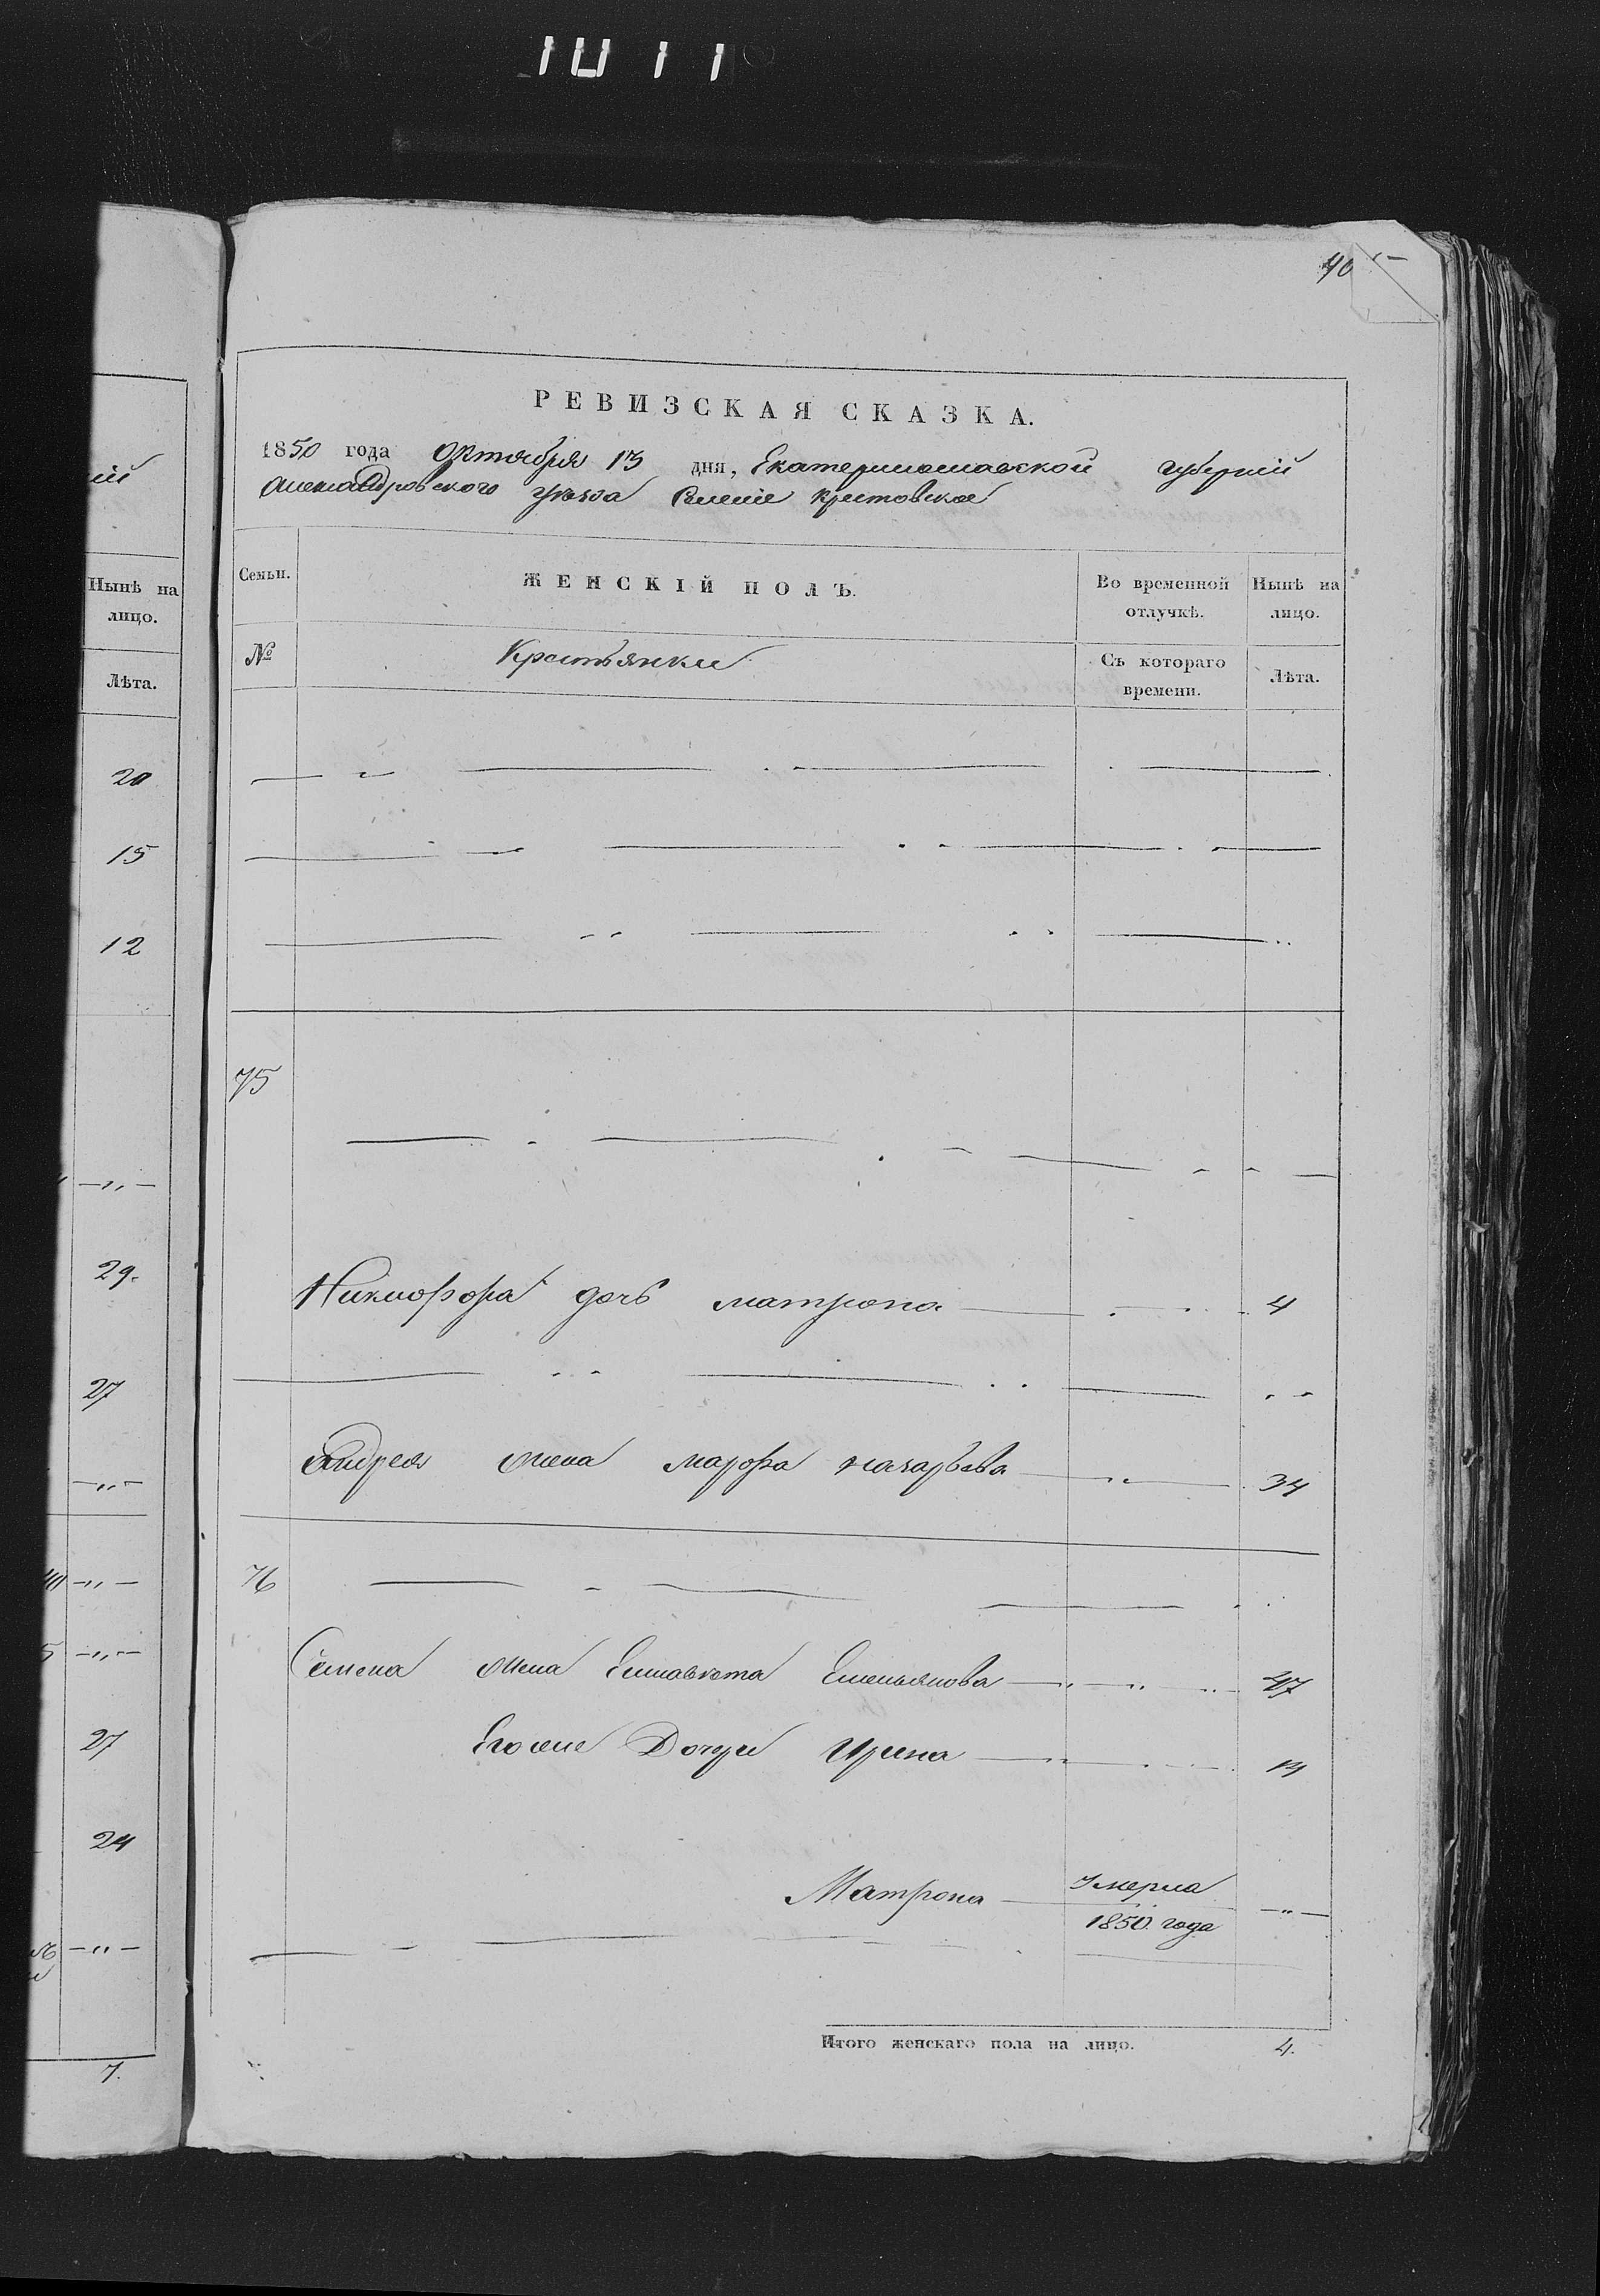 1011
40
РЕВИЗСКАЯ СКАЗКА.
1850 года Октября 13 дня, Екатеринославской губерніи
Александровского уезда Селеніе Крестовское
ій
Нынѣ на
лицо.
Лѣта.
20
15
12
—„—
29.
27
—„—
—„—
—„—
27
24
—„—
7.
Семьи.
ЖЕНСКІЙ ПОЛЪ.
Во временной
отлучкѣ.
Нынѣ на
лицо.
№
Крестьянки
Съ котораго
времени.
Лѣта.
75
Никифора дочь матрона 4
Андрея жена марфа назарьева 34
76
Семена жена Елисавета Емельянова 47
Егоже Дочери Ирина
Матрона Умерла
1850 года —„—
Итого женскаго пола на лицо. 4.